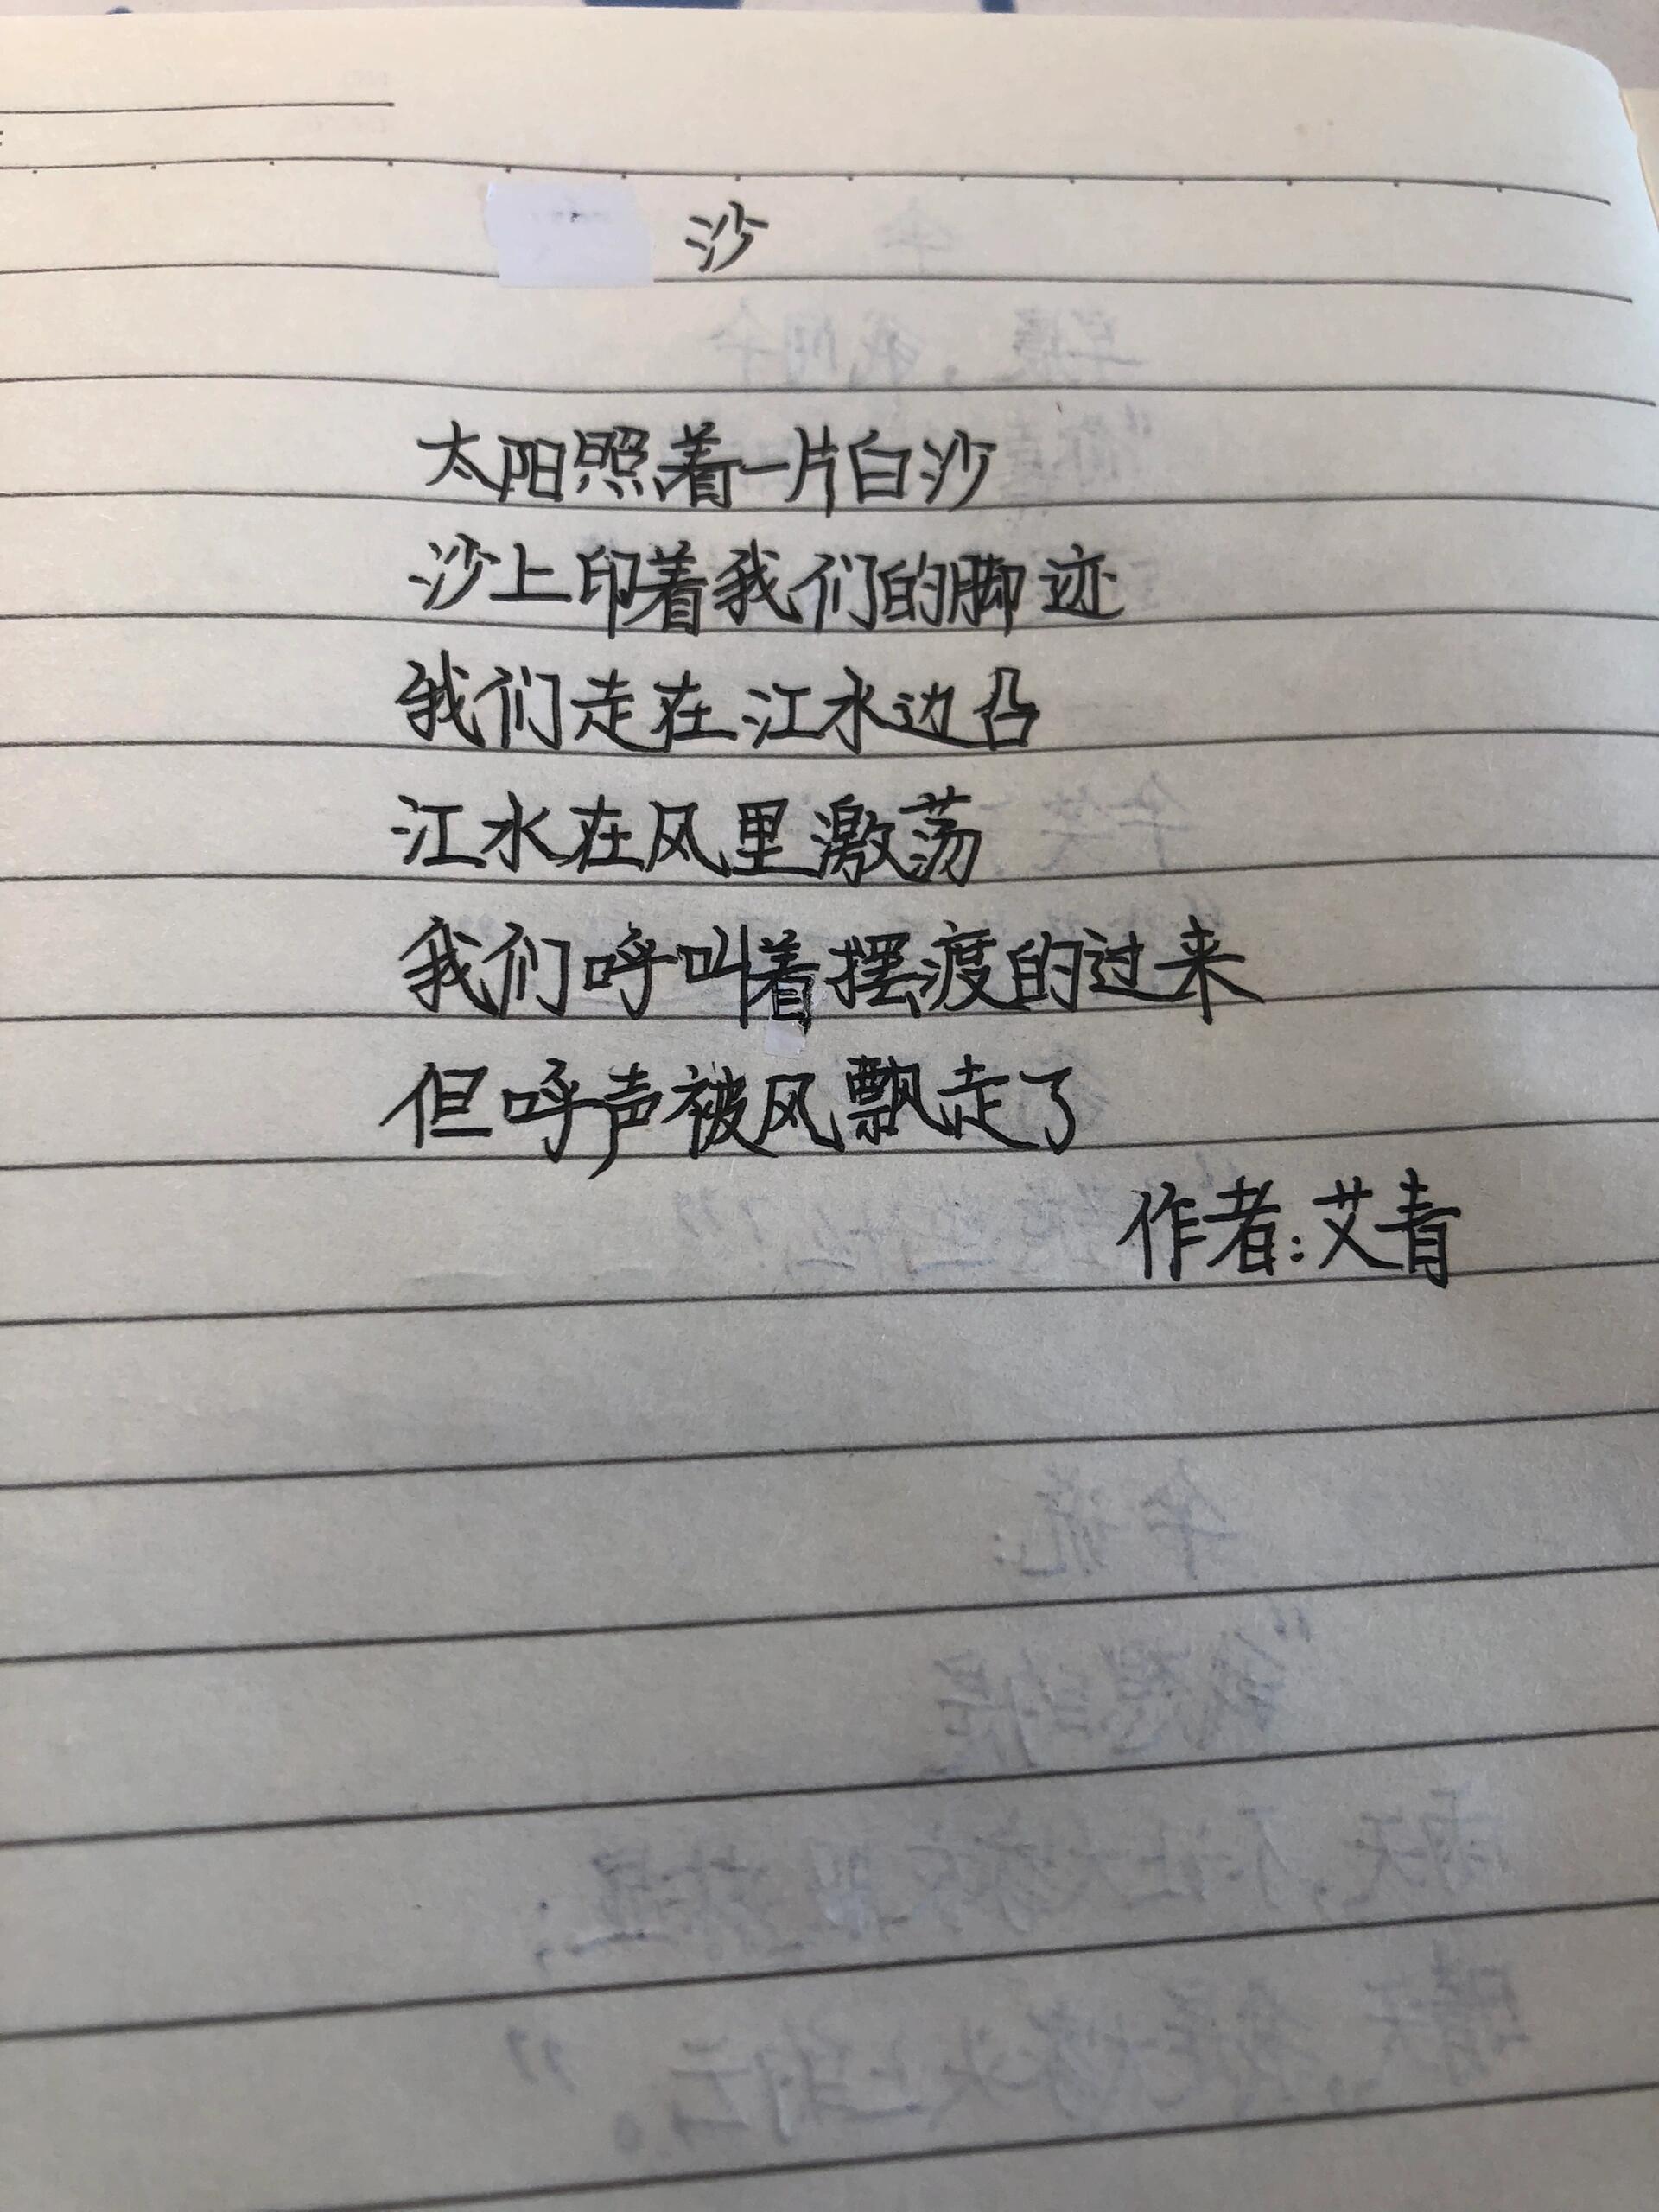 沙
太阳照着一片白沙
沙上印着我们的脚迹
我们走在江水边凸
江水在风里激荡
我们呼叫着摆渡的过来
但呼声被风飘走了
作者:艾青